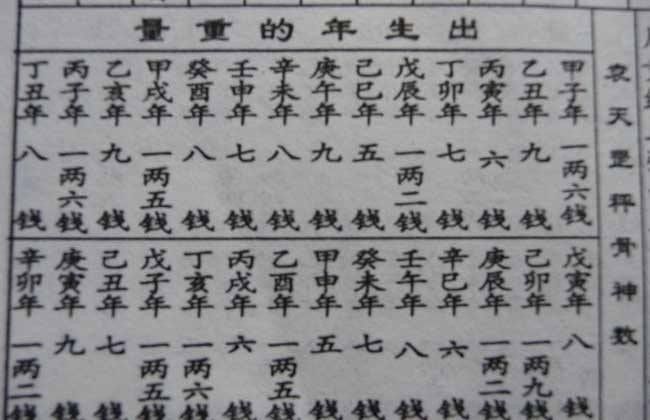 袁天罡秤骨神数
出生年的重量
甲子年一两六钱
乙丑年九钱
丙寅年六钱
丁卯年七钱
戊辰年一两二钱
己巳年五钱
庚午年九钱
辛未年八钱
壬申年七钱
癸酉年八钱
甲戌年一两五钱
乙亥年九钱
丙子年一两六钱
丁丑年八钱
戊寅年八钱
己卯年一两九钱
庚辰年一两二钱
辛巳年六钱
壬午年八钱
癸未年七钱
甲申年五钱
乙酉年一两五钱
丙戌年六钱
丁亥年一两六钱
戊子年一两五钱
己丑年七钱
庚寅年九钱
辛卯年一两二钱